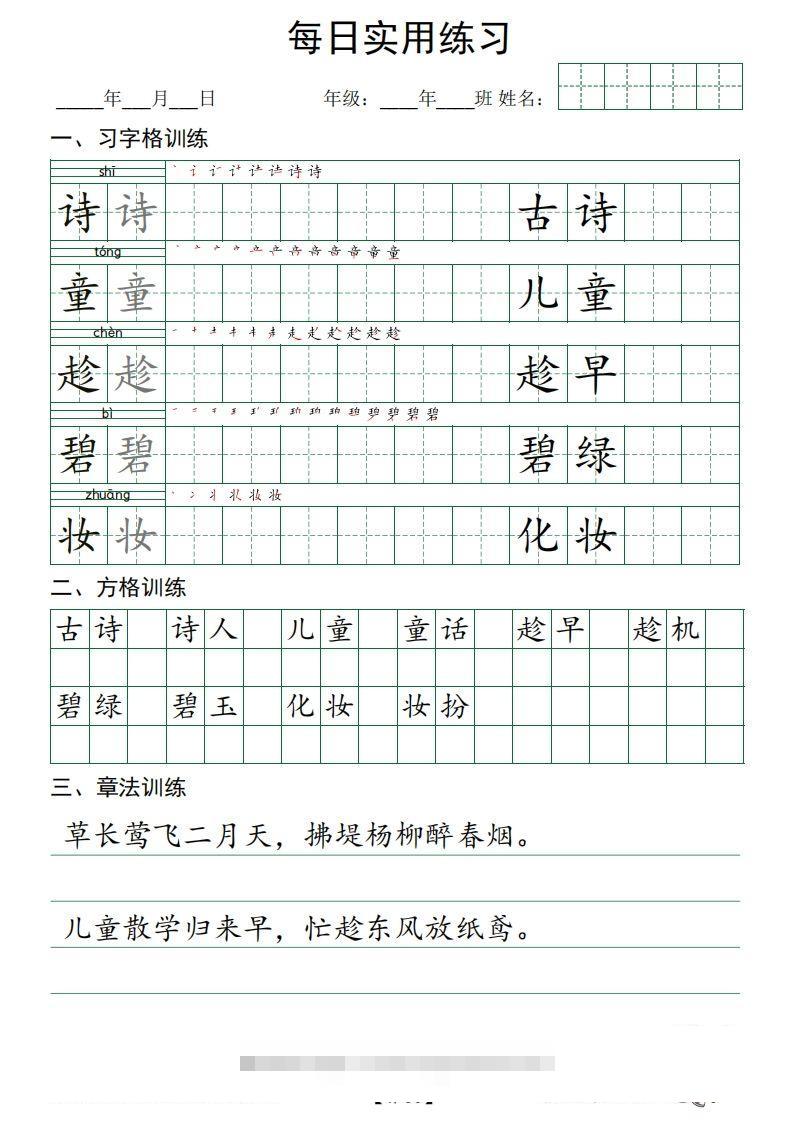 每日实用练习
_____年___月___日 年级：____年____班 姓名：
一、习字格训练
shī
诗 诗 古 诗
tóng
童 童 儿 童
chèn
趁 趁 趁 早
bì
碧 碧 碧 绿
zhuāng
妆 妆 化 妆
二、方格训练
古诗 诗人 儿童 童话 趁早 趁机
碧绿 碧玉 化妆 妆扮
三、章法训练
草长莺飞二月天，拂堤杨柳醉春烟。
儿童散学归来早，忙趁东风放纸鸢。